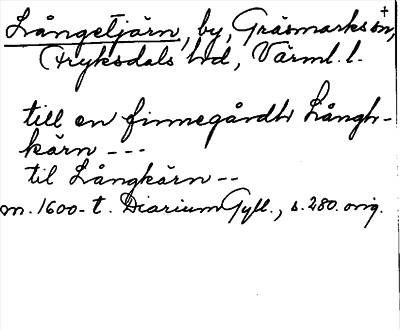 Långetjärn, by, Gräsmarks sn,
Fryksdals hd, Värml. l.
till en finnegårdh Långh-
kärn ---
til Långkärn --
m. 1600-t. Diarium Gyll., s. 280. orig.